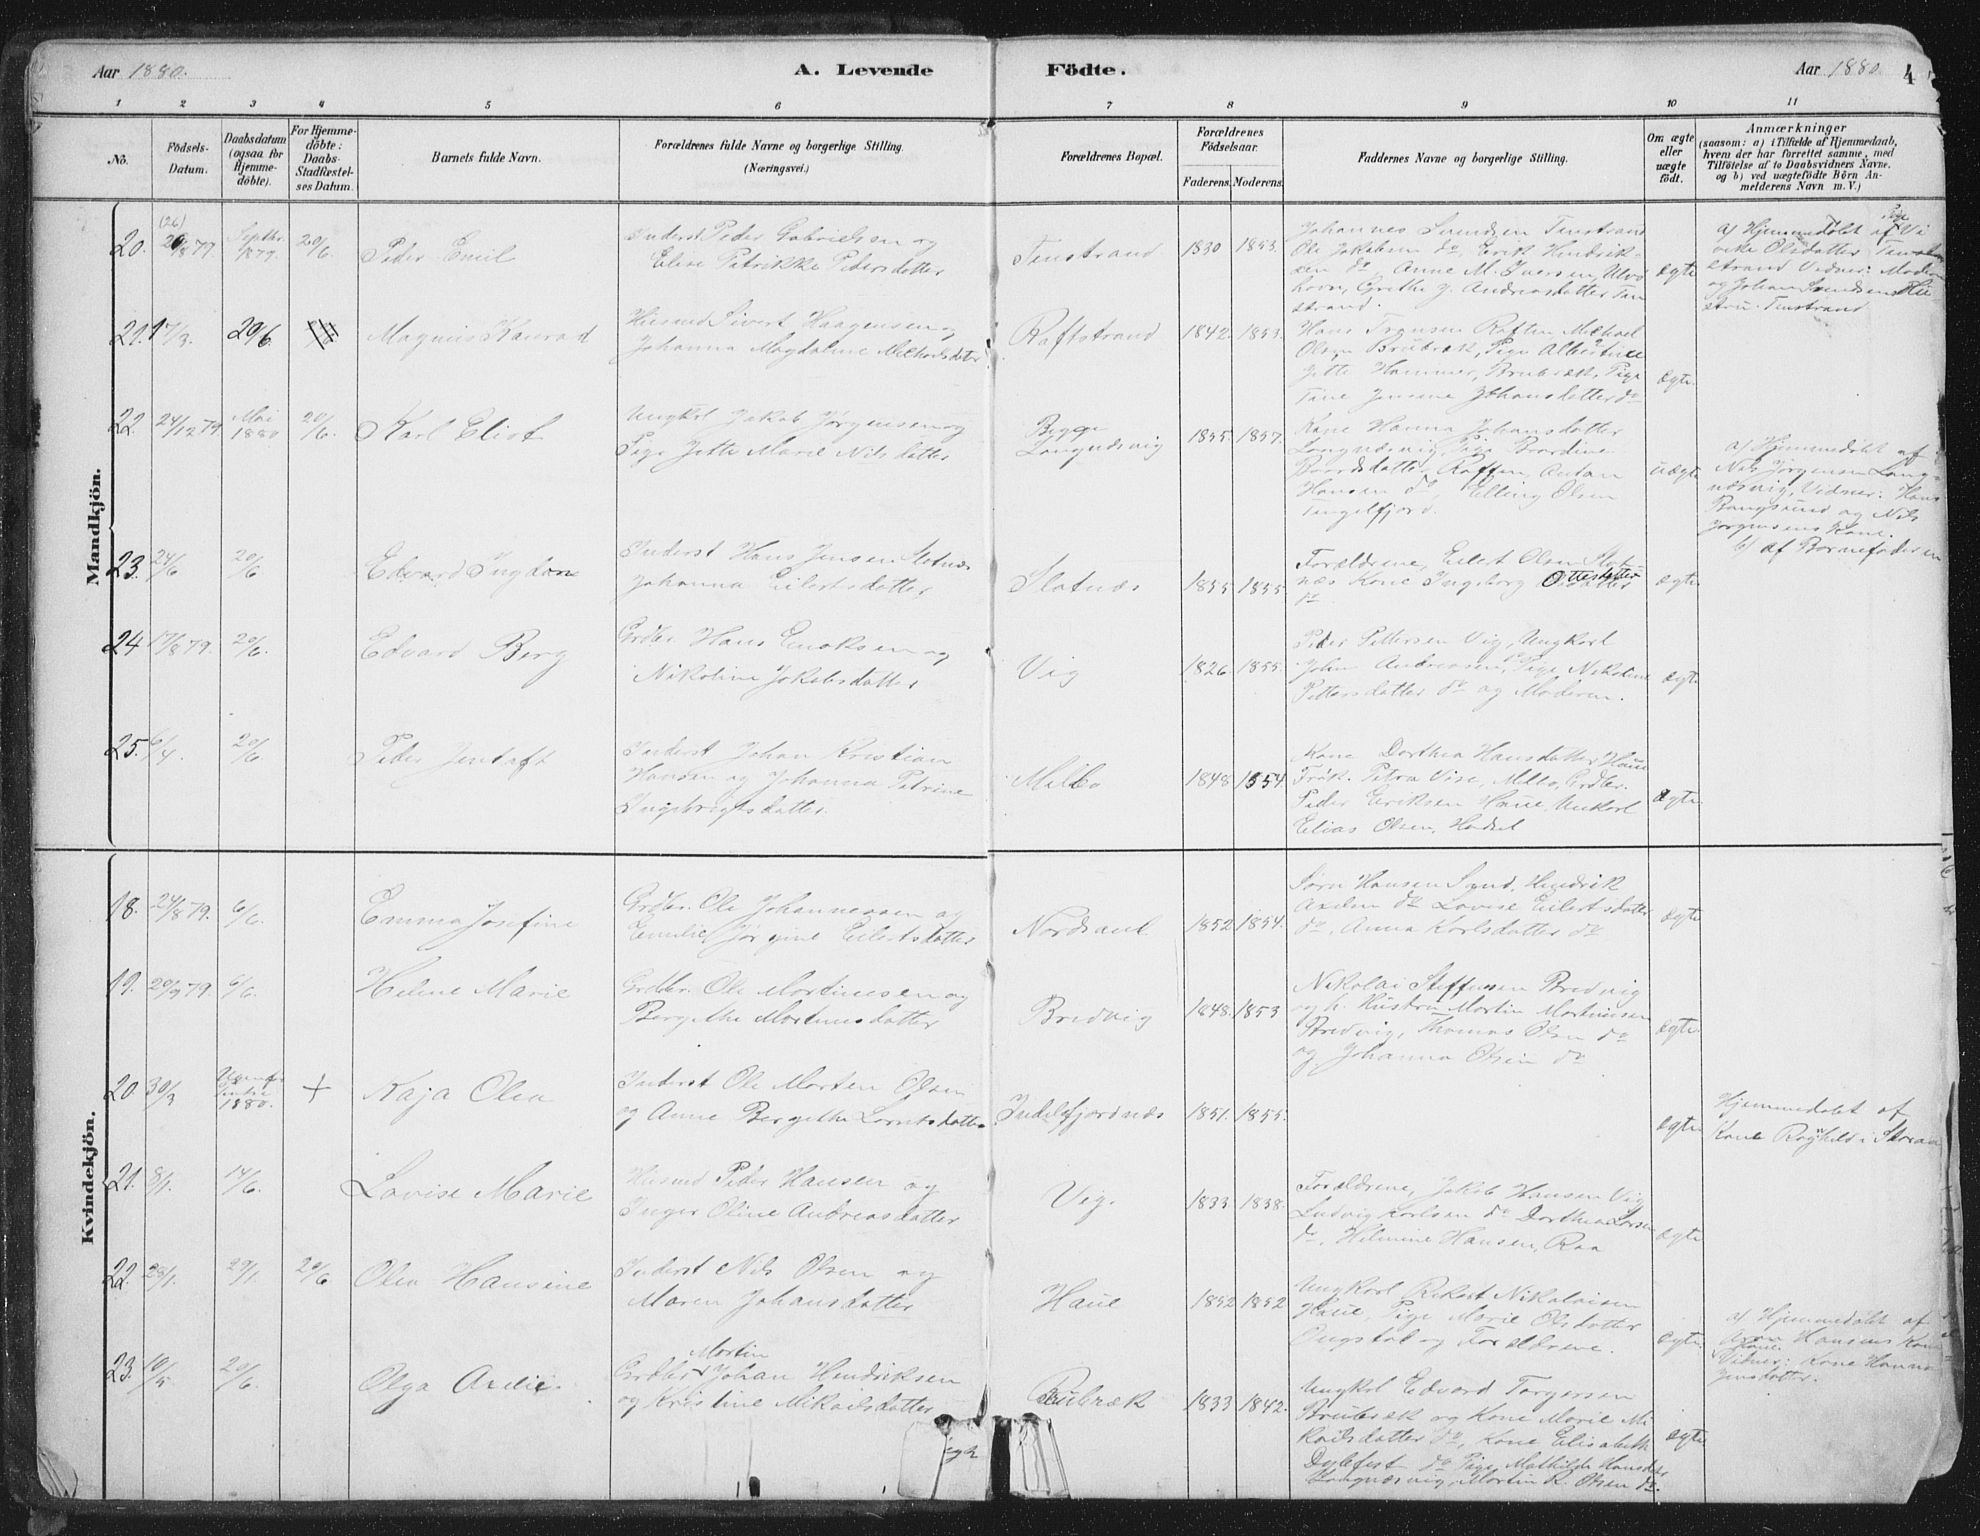 Aar 1880.
A. Levende
Födte.
Aar 1880
4
1 2 3 4 5 6 7 8 9 10 11
No.
Födsels-Datum.
Daabsdatum (ogsaa for Hjemmedöbte).
For Hjemmedöbte: Daabs-Stadfæstelses Datum.
Barnets fulde Navn.
Forældrenes fulde Navne og borgerlige Stilling.
(Næringsvei.)
Forældrenes Bopæl.
Forældrenes Födselsaar.
Faderens. Moderens.
Faddernes Navne og borgerlige Stilling.
Om ægte eller uægte födt.
Anmærkninger
(saasom: a) i Tilfælde af Hjemmedaab, hvem der har forrettet samme, med Tilföielse af to Daabsvidners Navne, og b) ved uægtefödte Börn Anmelderens Navn m. V.)
Mandkjön.
20. (26) 79. Septbr. 1879. 20/6. Peder Emil
Inderst Peder Gabrielsen og
Elise Petrikke Pedersdatter
Tenstrand 1830 1853.
Johannes Tenstrand
Ole Jakobsen do, Erik Hendrik-
sen do Anne M. Iversen,
Grethe J. Andreasdatter Ten
strand.
ægte
a) Hjemmedøbt af Pige Vi
vike Olsdatter
strand Vidner: Moderen
og Johan
Tenstrand
21. 17/3. 20/6. Magnus Konrad
Husmd Sivert Haagensen og
Johanna Magdalene Mikkelsdatter
Raftstrand 1842. 1853.
Hans Raften Michael
Olsen Brubræk, Pige Albertine
Jette Hammer, Brubræk, Pige
Jensine Johansdatter do
ægte.
22. 24/12 79. Mai 1880 20/6. Karl Eliot
Ungkrl Jakob Jørgensen og
Pige Jette Marie Nilsdatter
Begge
Langnæsvig 1855. 1857.
Kone Hanna Johansdatter
Langnæsvig, Pige
Raften, Anton
Hansen do, Elling Olsen
Tengelfjord.
uægte
a) Hjemmedøbt af
Nils Jørgensen Lang-
næsvig, Vidner: Hans
og Nils
Jørgensens Kone.
b) af Barnefaderen
23. 24/6 20/6 Edvard
Inderst Hans Jensen Slotnæs
Johanna Eilertsdatter
Slotnæs 1855 1855
Forældrene, Eilert Olsen Slot-
næs Kone Ingeborg Ottesdatter
do
ægte.
24 17/8 79. 20/6. Edvard Berg
Grdbr. Hans og
Nikoline Jakobsdatter
Vig 1826 1855.
Peder Pettersen Vig, Ungkarl
Johan Andreassen, Pige Nikoline
Pettersdatter do og Moderen.
ægte.
25. 6/4. 20/6. Peder Jentoft
Inderst Johan Kristian
Hansen og Johanna Petrine
Ingebrigtsdatter
Melbo 1848 1854.
Kone Dorthea Hansdatter, Haue
Frøk. Petra Melbo, Grdbr.
Peder Eriksen Haue, Unkarl
Elias Olsen, Hadsel
ægte.
Kvindekjön.
18. 24/8 79. 6/6. Emma Josefine
Grdbr. Ole Johannessen og
Emelie Jørgine Eilertsdatter
Nordsand 1852 1854.
Søren Hansen Sand, Hendrik
Axelsen do Lovise Eilertsdatter
do, Anna Karlsdatter do
ægte
19. 20/9 79. 6/6. Helene Marie
Grdbr. Ole Martinusen og
Bergithe Martinusdatter
Bredvig 1848. 1853
Nikolai Steffensen Bredvig
og h. Hustru Martin Martinusen
Bredvig, Thomas Olsen do
og Johanna Olsen do
ægte.
20. 30/3 1880. + Kaja Olea
Inderst Ole Morten Olsen
og Anne Bergithe Lorntsdatter
Indlefjordnæs 1851. 1855.
ægte.
Hjemmedøbt af
Kone Ragnhild i
21. 8/1. 14/6. Lovise Marie
Husmd Peder Hansen og
Inger Oline Andreasdatter
Vig. 1833. 1838.
Forældrene, Jakob Hansen Vig
Ludvig Karlsen do Dorthea Larsen
do, Helmine Hansen, Raa
ægte
22. 28/1. 29/1. 20/6 Olea Hansine
Inderst Nils Olsen og
Maren Johansdatter
Haue 1852 1852
Ungkarl Rikart Nikolaisen
Haue, Pige Marie Olsdatter
Ongstad og Forældrene.
ægte.
a) Hjemmedøbt af
Hansens Kone
Vidner: Kone Hanna
Jensdatter.
23. 10/5 20/6. Olga
Grdbr Martin Johan Hendriksen
og Kristine Mikailsdatter
Brubræk 1833 1842.
Ungkrl Edvard Torgersen
Brubræk og Kone Marie Mi
kailsdatter do, Kone Elisabeth
do Pige Mathilde Hansdtr
Langnæsvig, Martin R. Olsen do.
ægte